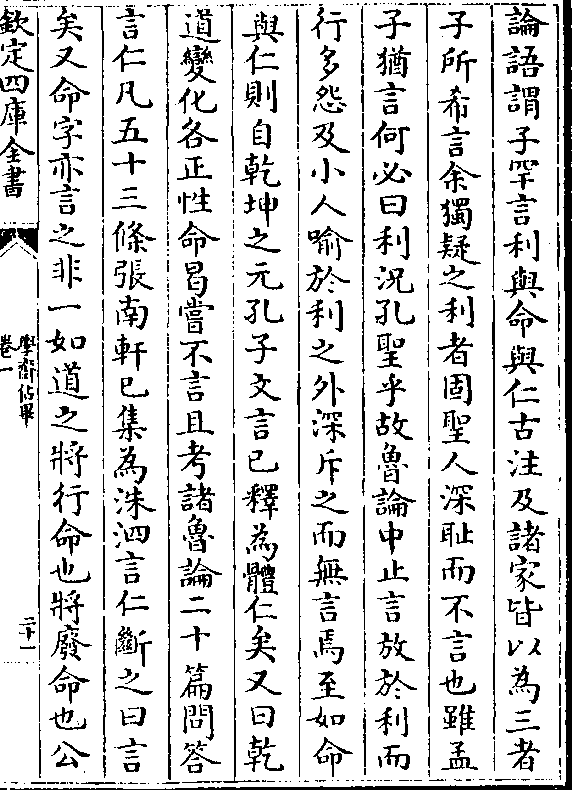 論語謂子罕言利與命與仁古注及諸家皆以為三者
子所希言余獨疑之利者固聖人深恥而不言也雖孟
子猶言何必曰利況孔聖乎故魯論中止言放於利而
行多怨及小人喻於利之外深斥之而無言焉至如命
與仁則自乾坤之元孔子文言已釋為體仁矣又曰乾
道變化各正性命曷嘗不言且考諸魯論二十篇問答
言仁凡五十三條張南軒已集為洙泗言仁斷之曰言
矣又命字亦言之非一如道之將行命也將廢命也公
欽定四庫全書
學齋佔畢
卷一
二十一